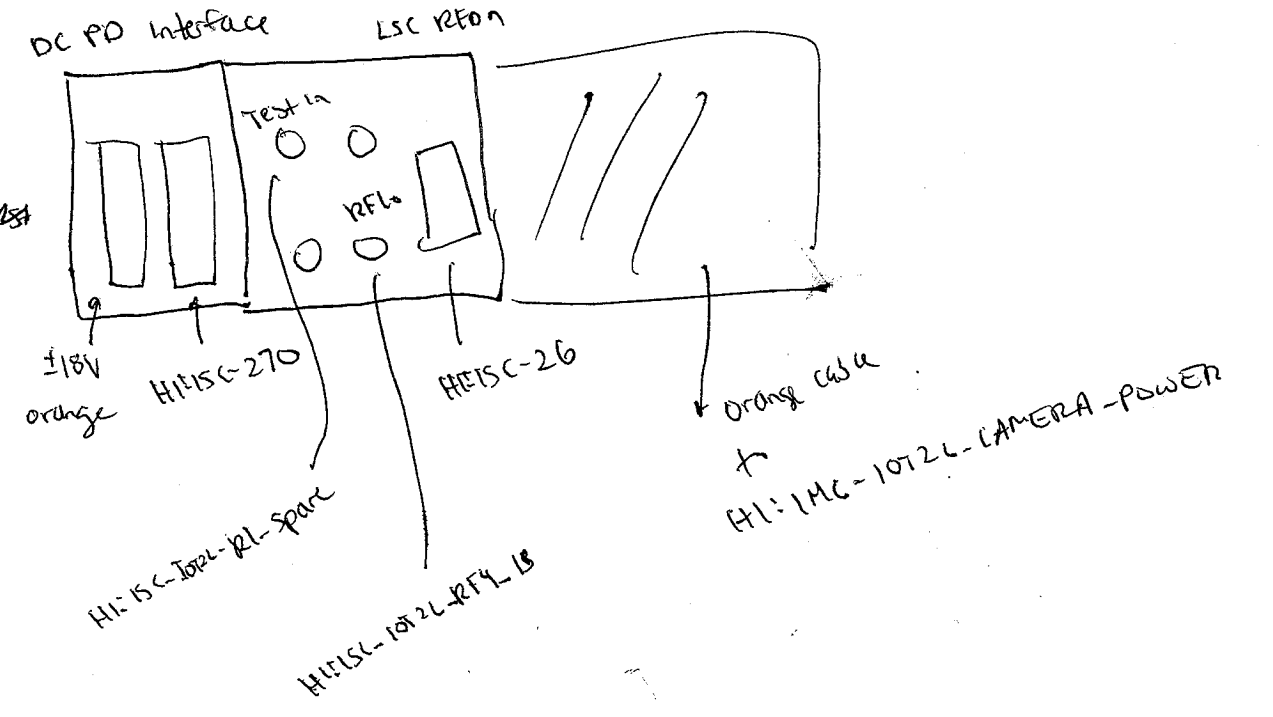 DC PD Interface
LSC RFDn
Test in
RFLo
±18V
orange
H1:ISC-270
H1:ISC-26
orange cable
+
H1:IMC-IOT2L-CAMERA-POWER
H1:ISC-IOT2L-R1-Spare
H1:ISC-IOT2L-RF4_LB